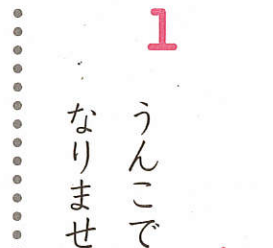 1
うんこで
なりませ